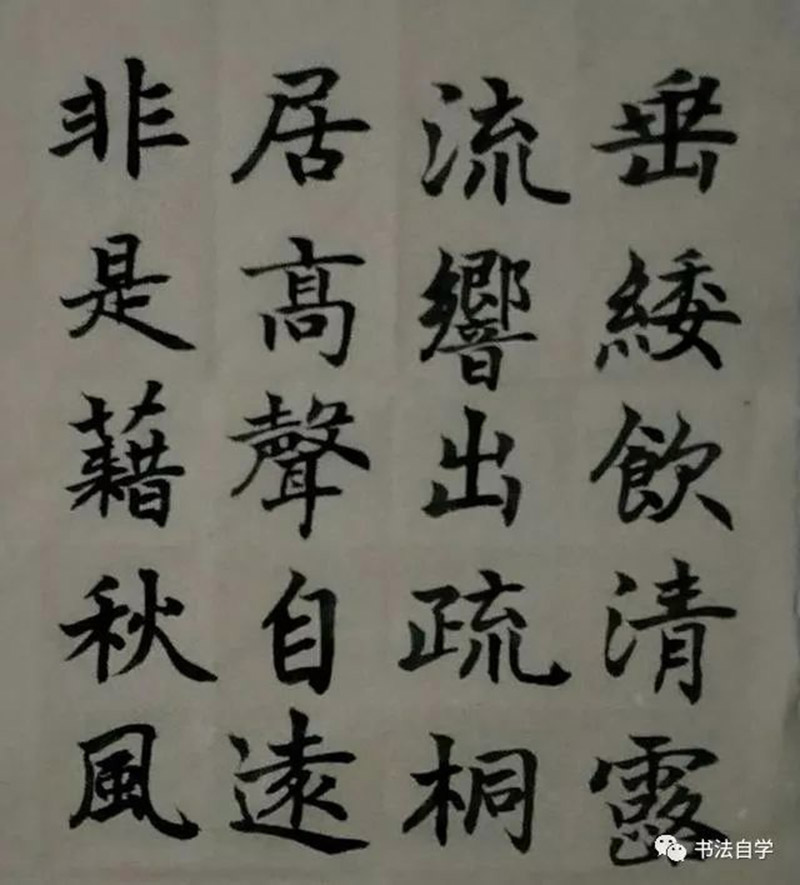 垂緌飲清露
流響出疏桐
居高聲自遠
非是藉秋風
书法自学